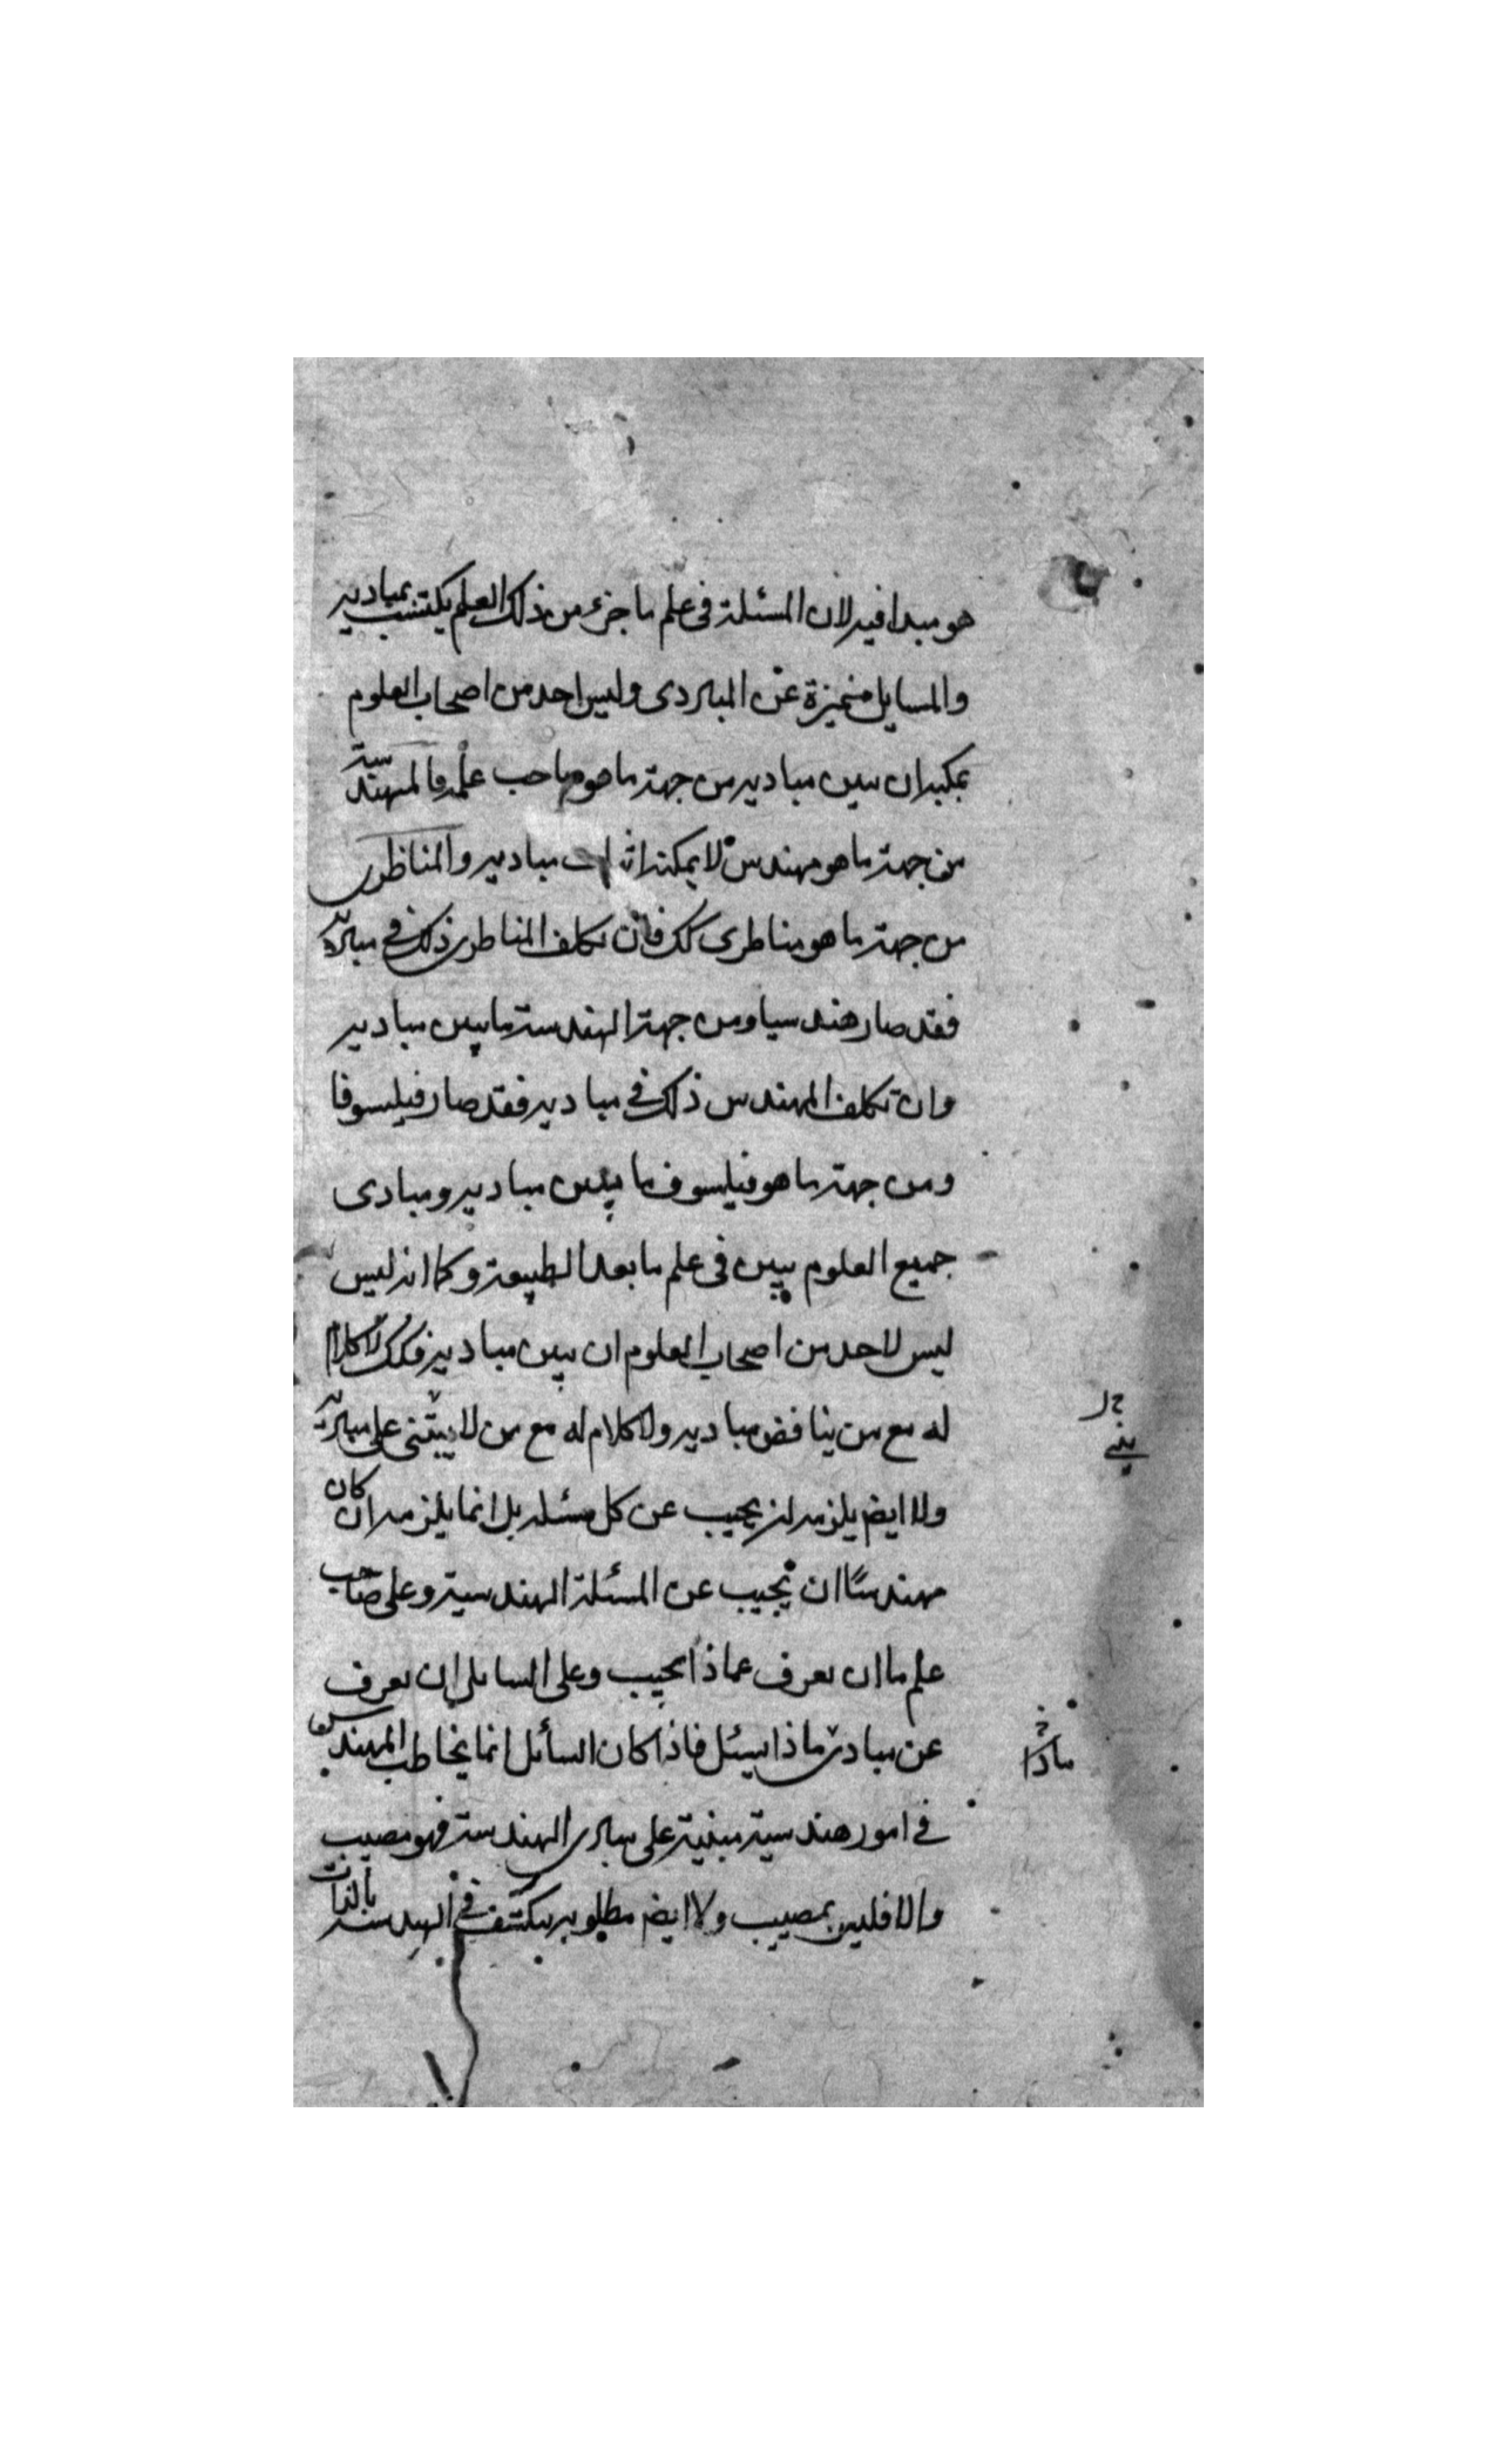 هو مبدا فيه لان المسئلة فى علم ما جزء من ذلك العلم يكتسب بمباديه
والمسايل متميزة عن المبادى وليس احد من اصحاب العلوم
يمكنه ان يبين مباديه من جهة ما هو صاحب علمه فالمهندسة
من جهة ما هو مهندس لا يمكنه اثبات مباديه والمناظرى
من جهة ما هو مناظرى كك فان تكلف المناظرى ذلك فى مباديه
فقد صار هندسيا ومن جهة الهندسة ما يبين مباديه
وان تكلف المهندس ذلك فى مباديه فقد صار فيلسوفا
ومن جهة ما هو فيلسوف ما يبين مباديه ومبادى
جميع العلوم يبين فى علم ما بعد الطبيعة وكما انه ليس
ليس لاحد من اصحاب العلوم ان يبين مباديه فكك لا كلام
له مع من يناقض مباديه ولا كلام له مع من لا يبتنى على مباديه
ولا ايض يلزمه ان يجيب عن كل مسئله بل انما يلزمه ان كان
مهندسًا ان يجيب عن المسئلة الهندسية وعلى صاحب
علم ما ان يعرف عماذا يجيب وعلى السايل ان يعرف
عن مبادى ماذا يسئل فاذا كان السائل انما يخاطب المهندس
فى امور هندسية مبنية على مبادى الهندسة فهو مصيب
والا فليس بمصيب ولا ايض مطلوبه ينكشف فى الهندسة بالذات
يبنى
ماذا